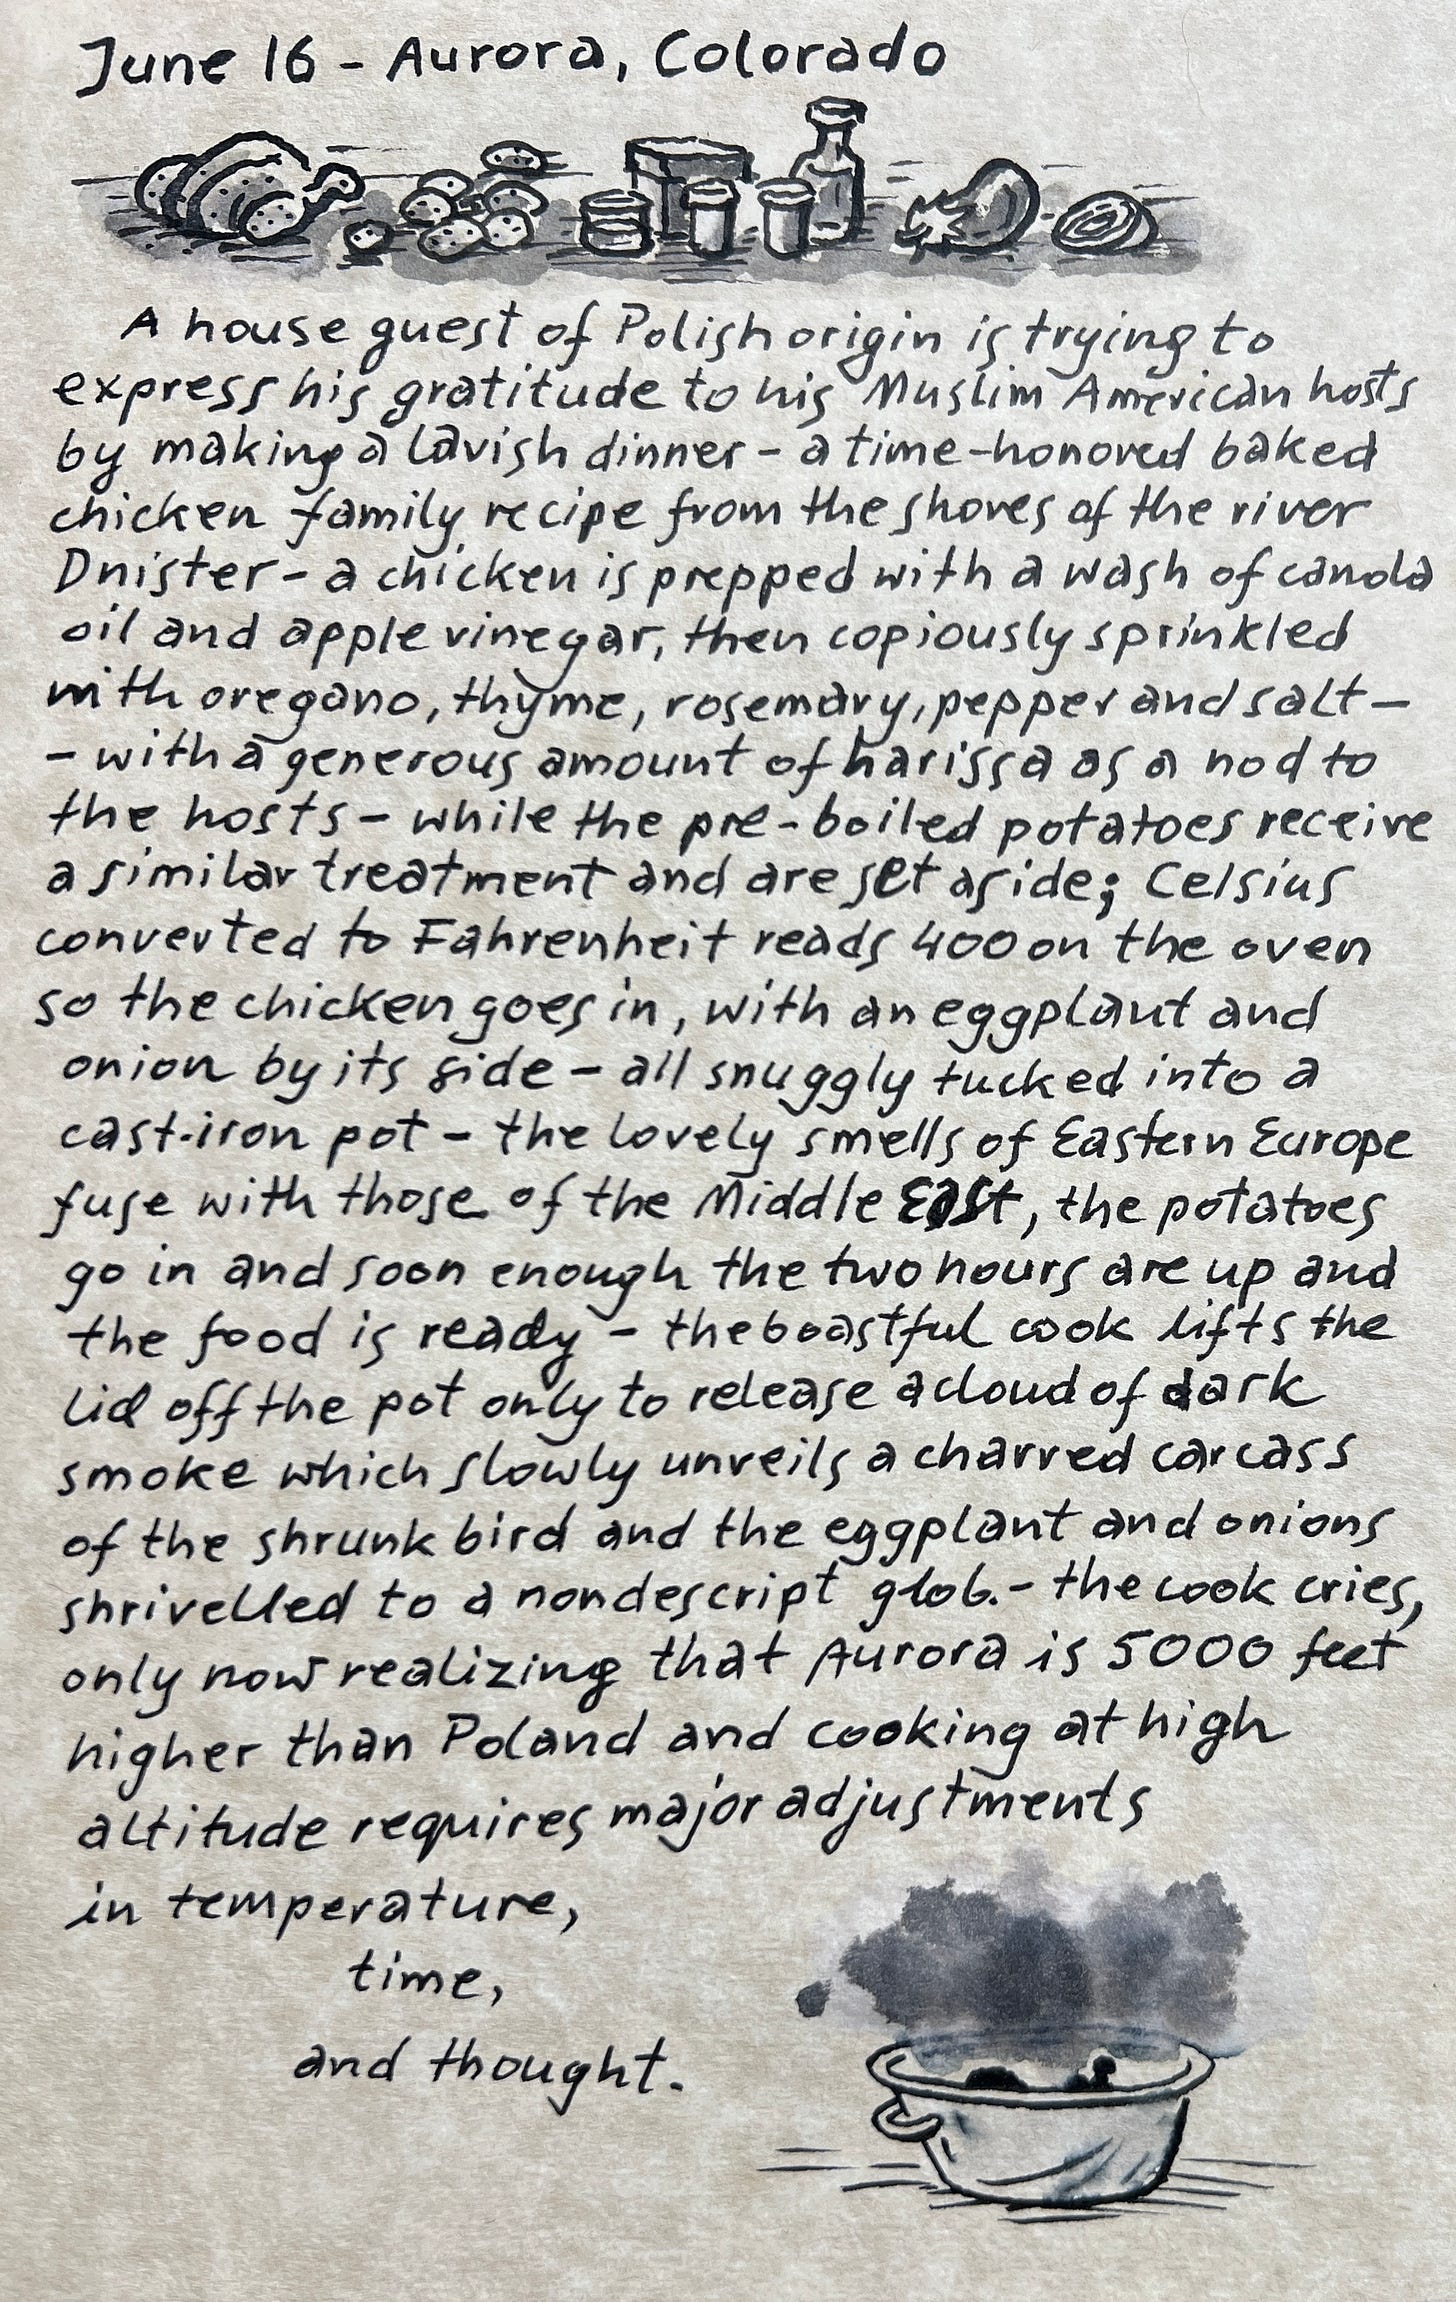 June 16 - Aurora, Colorado
A house guest of Polish origin is trying to
express his gratitude to his Muslim American hosts
by making a lavish dinner - a time-honored baked
chicken family recipe from the shores of the river
Dnister - a chicken is prepped with a wash of canola
oil and apple vinegar, then copiously sprinkled
with oregano, thyme, rosemary, pepper and salt -
- with a generous amount of harissa as a nod to
the hosts - while the pre-boiled potatoes receive
a similar treatment and are set aside; Celsius
converted to Fahrenheit reads 400 on the oven
so the chicken goes in, with an eggplant and
onion by its side - all snuggly tucked into a
cast-iron pot - the lovely smells of Eastern Europe
fuse with those of the Middle East, the potatoes
go in and soon enough the two hours are up and
the food is ready - the boastful cook lifts the
lid off the pot only to release a cloud of dark
smoke which slowly unveils a charred carcass
of the shrunk bird and the eggplant and onions
shrivelled to a nondescript glob. - the cook cries,
only now realizing that Aurora is 5000 feet
higher than Poland and cooking at high
altitude requires major adjustments
in temperature,
time,
and thought.